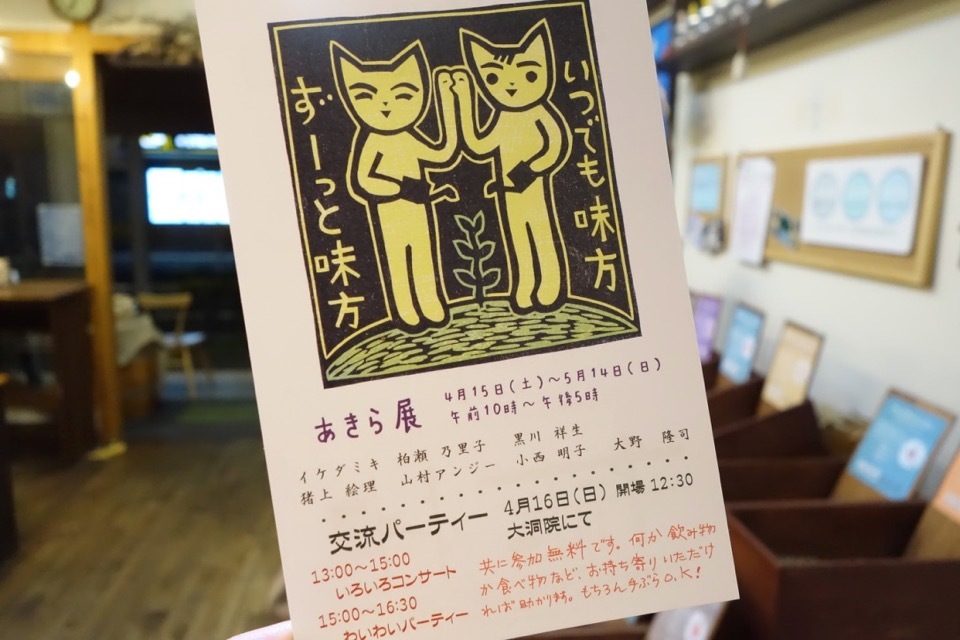 いつでも味方
ずーっと味方
あきら展
4月15日(土)〜5月14日(日)
午前10時〜午後5時
イケダミキ 柏瀬 乃里子 黒川 祥生
猪上 絵理 山村アンジー 小西 明子 大野 隆司
交流パーティー 4月16日(日) 開場 12:30
大洞院にて
13:00〜15:00
いろいろコンサート
15:00〜16:30
わいわいパーティー
共に参加無料です。何か飲み物
か食べ物など、お持ち寄りいただけ
れば助かります。もちろん手ぶらO.K!